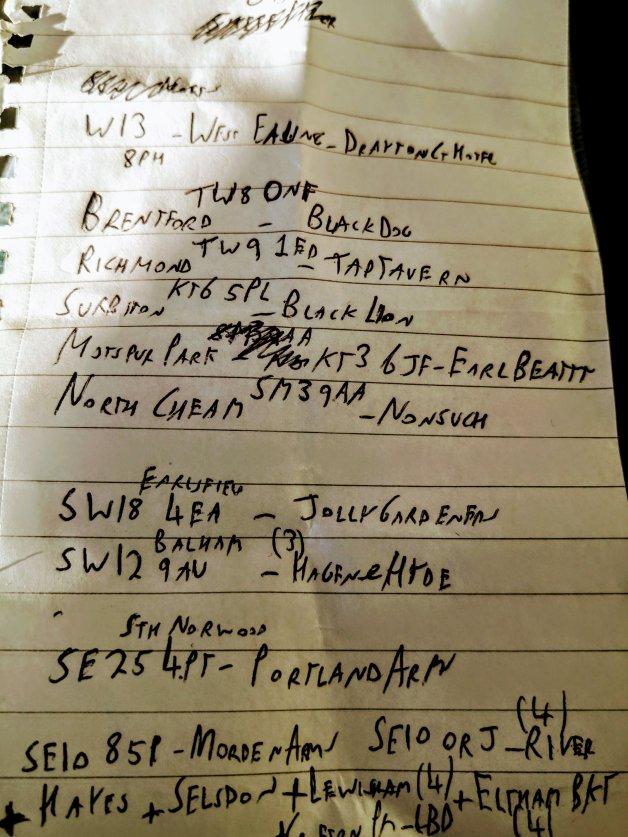 W13 - WEST EALING - DRAYTON CT HOTEL
8PM
TW8 0NF
BRENTFORD - BLACK DOG
TW9 1ED
RICHMOND - TAP TAVERN
KT6 5PL
SURBITON - BLACK LION
MOTSPUR PARK KT3 6JF - EARL BEATTY
SM3 9AA
NORTH CHEAM - NONSUCH
EARLSFIELD
SW18 4EA - JOLLY GARDENERS
BALHAM (3)
SW12 9AU - HAGEN & HYDE
STH NORWOOD
SE25 4PT - PORTLAND ARM
(4)
SE10 85P - MORDEN ARMS SE10 0RJ - RIVER
+ HAYES + SELSDON + LEWISHAM (4) + ELTHAM BKT
(4)